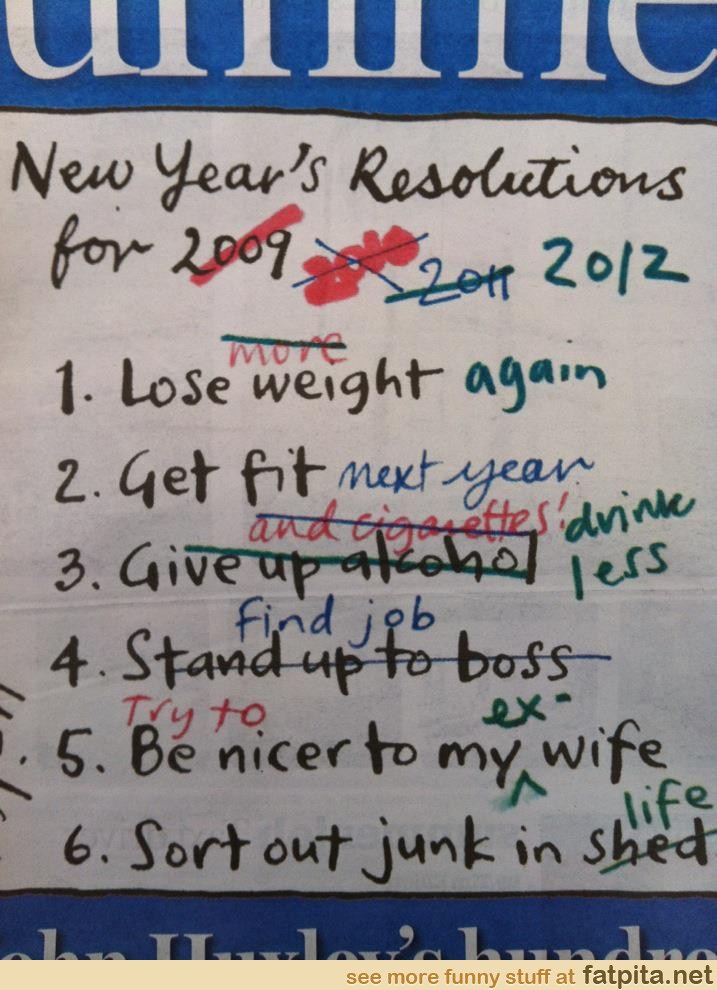 New Year's Resolutions
for 2009 2010 2011 2012
more
1. Lose weight again
2. Get fit next year
and cigarettes! drink
3. Give up alcohol less
find job
4. Stand up to boss
Try to ex-
5. Be nicer to my wife
life
6. Sort out junk in shed
Huxley's hundre
see more funny stuff at fatpita.net